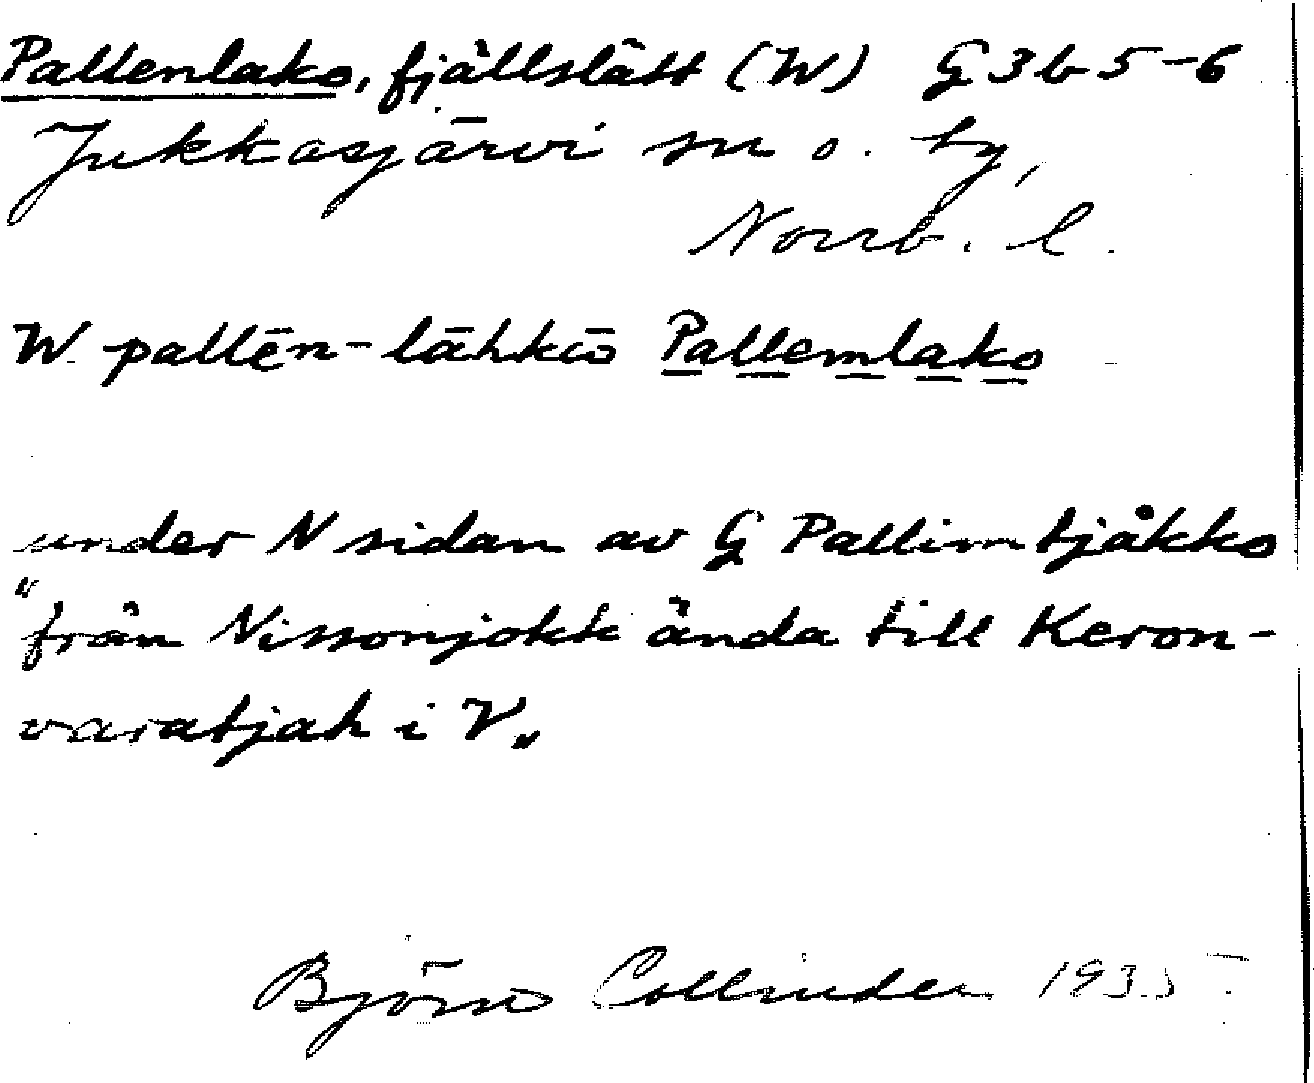 Pallenlako, fjällslätt (W) G 3 b 5-6
Jukkasjärvi sn o. by,
Norrb. l.
W. pallēn-lāhkō Pallemlako
under N sidan av G Pallimtjåkko
"från Nissonjokk ända till Keron-
varatjah i V"
Björn Collinder 1935